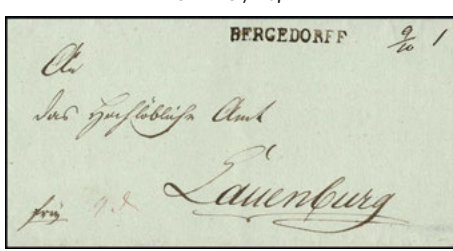 BERGEDORFF 9/10 1
An
das Hochlöbliche Amt
Lauenburg
frey